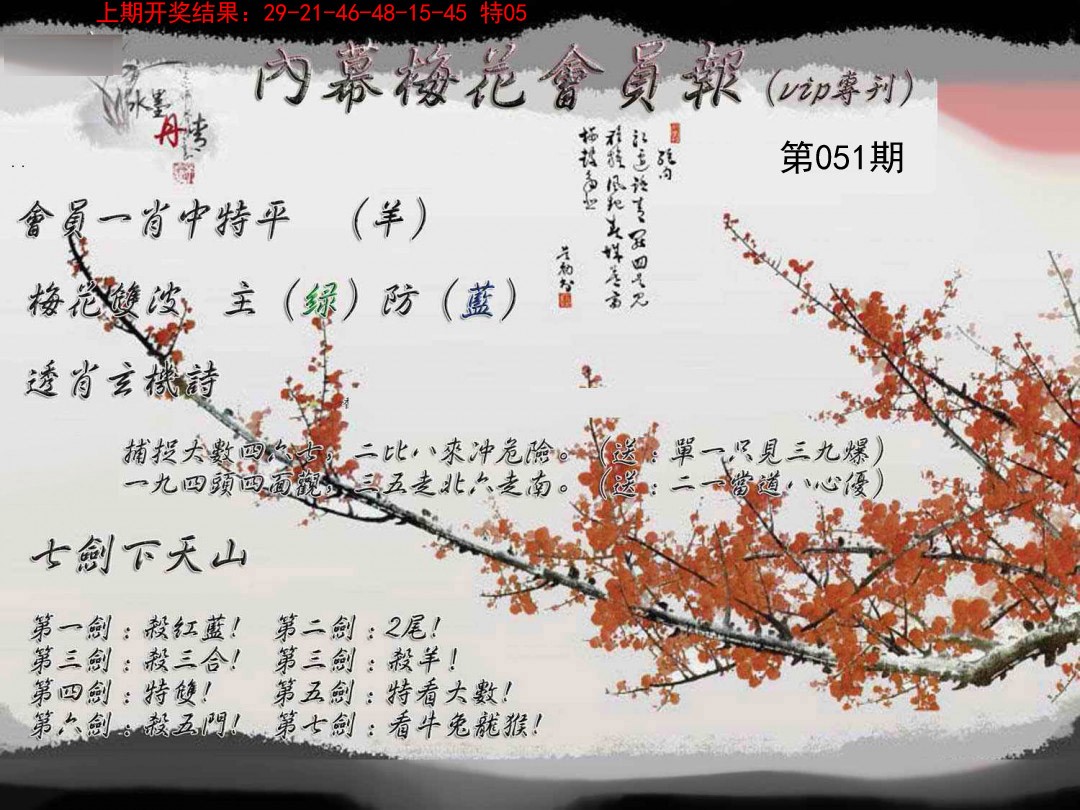 上期开奖结果：29-21-46-48-15-45 特05
內幕梅花會員報（vip專刊）
水墨
丹青
第051期
會員一肖中特平 （羊）
梅花雙波 主（綠）防（藍）
透肖玄機詩
捕捉大數四六七，二比八來沖危險。（送：單一只見三九爆）
一九四頭四面觀，三五走北六走南。（送：二一當道八心優）
七劍下天山
第一劍：殺紅藍！ 第二劍：2尾！
第三劍：殺三合！ 第三劍：殺羊！
第四劍：特雙！ 第五劍：特看大數！
第六劍：殺五門！ 第七劍：看牛兔龍猴！